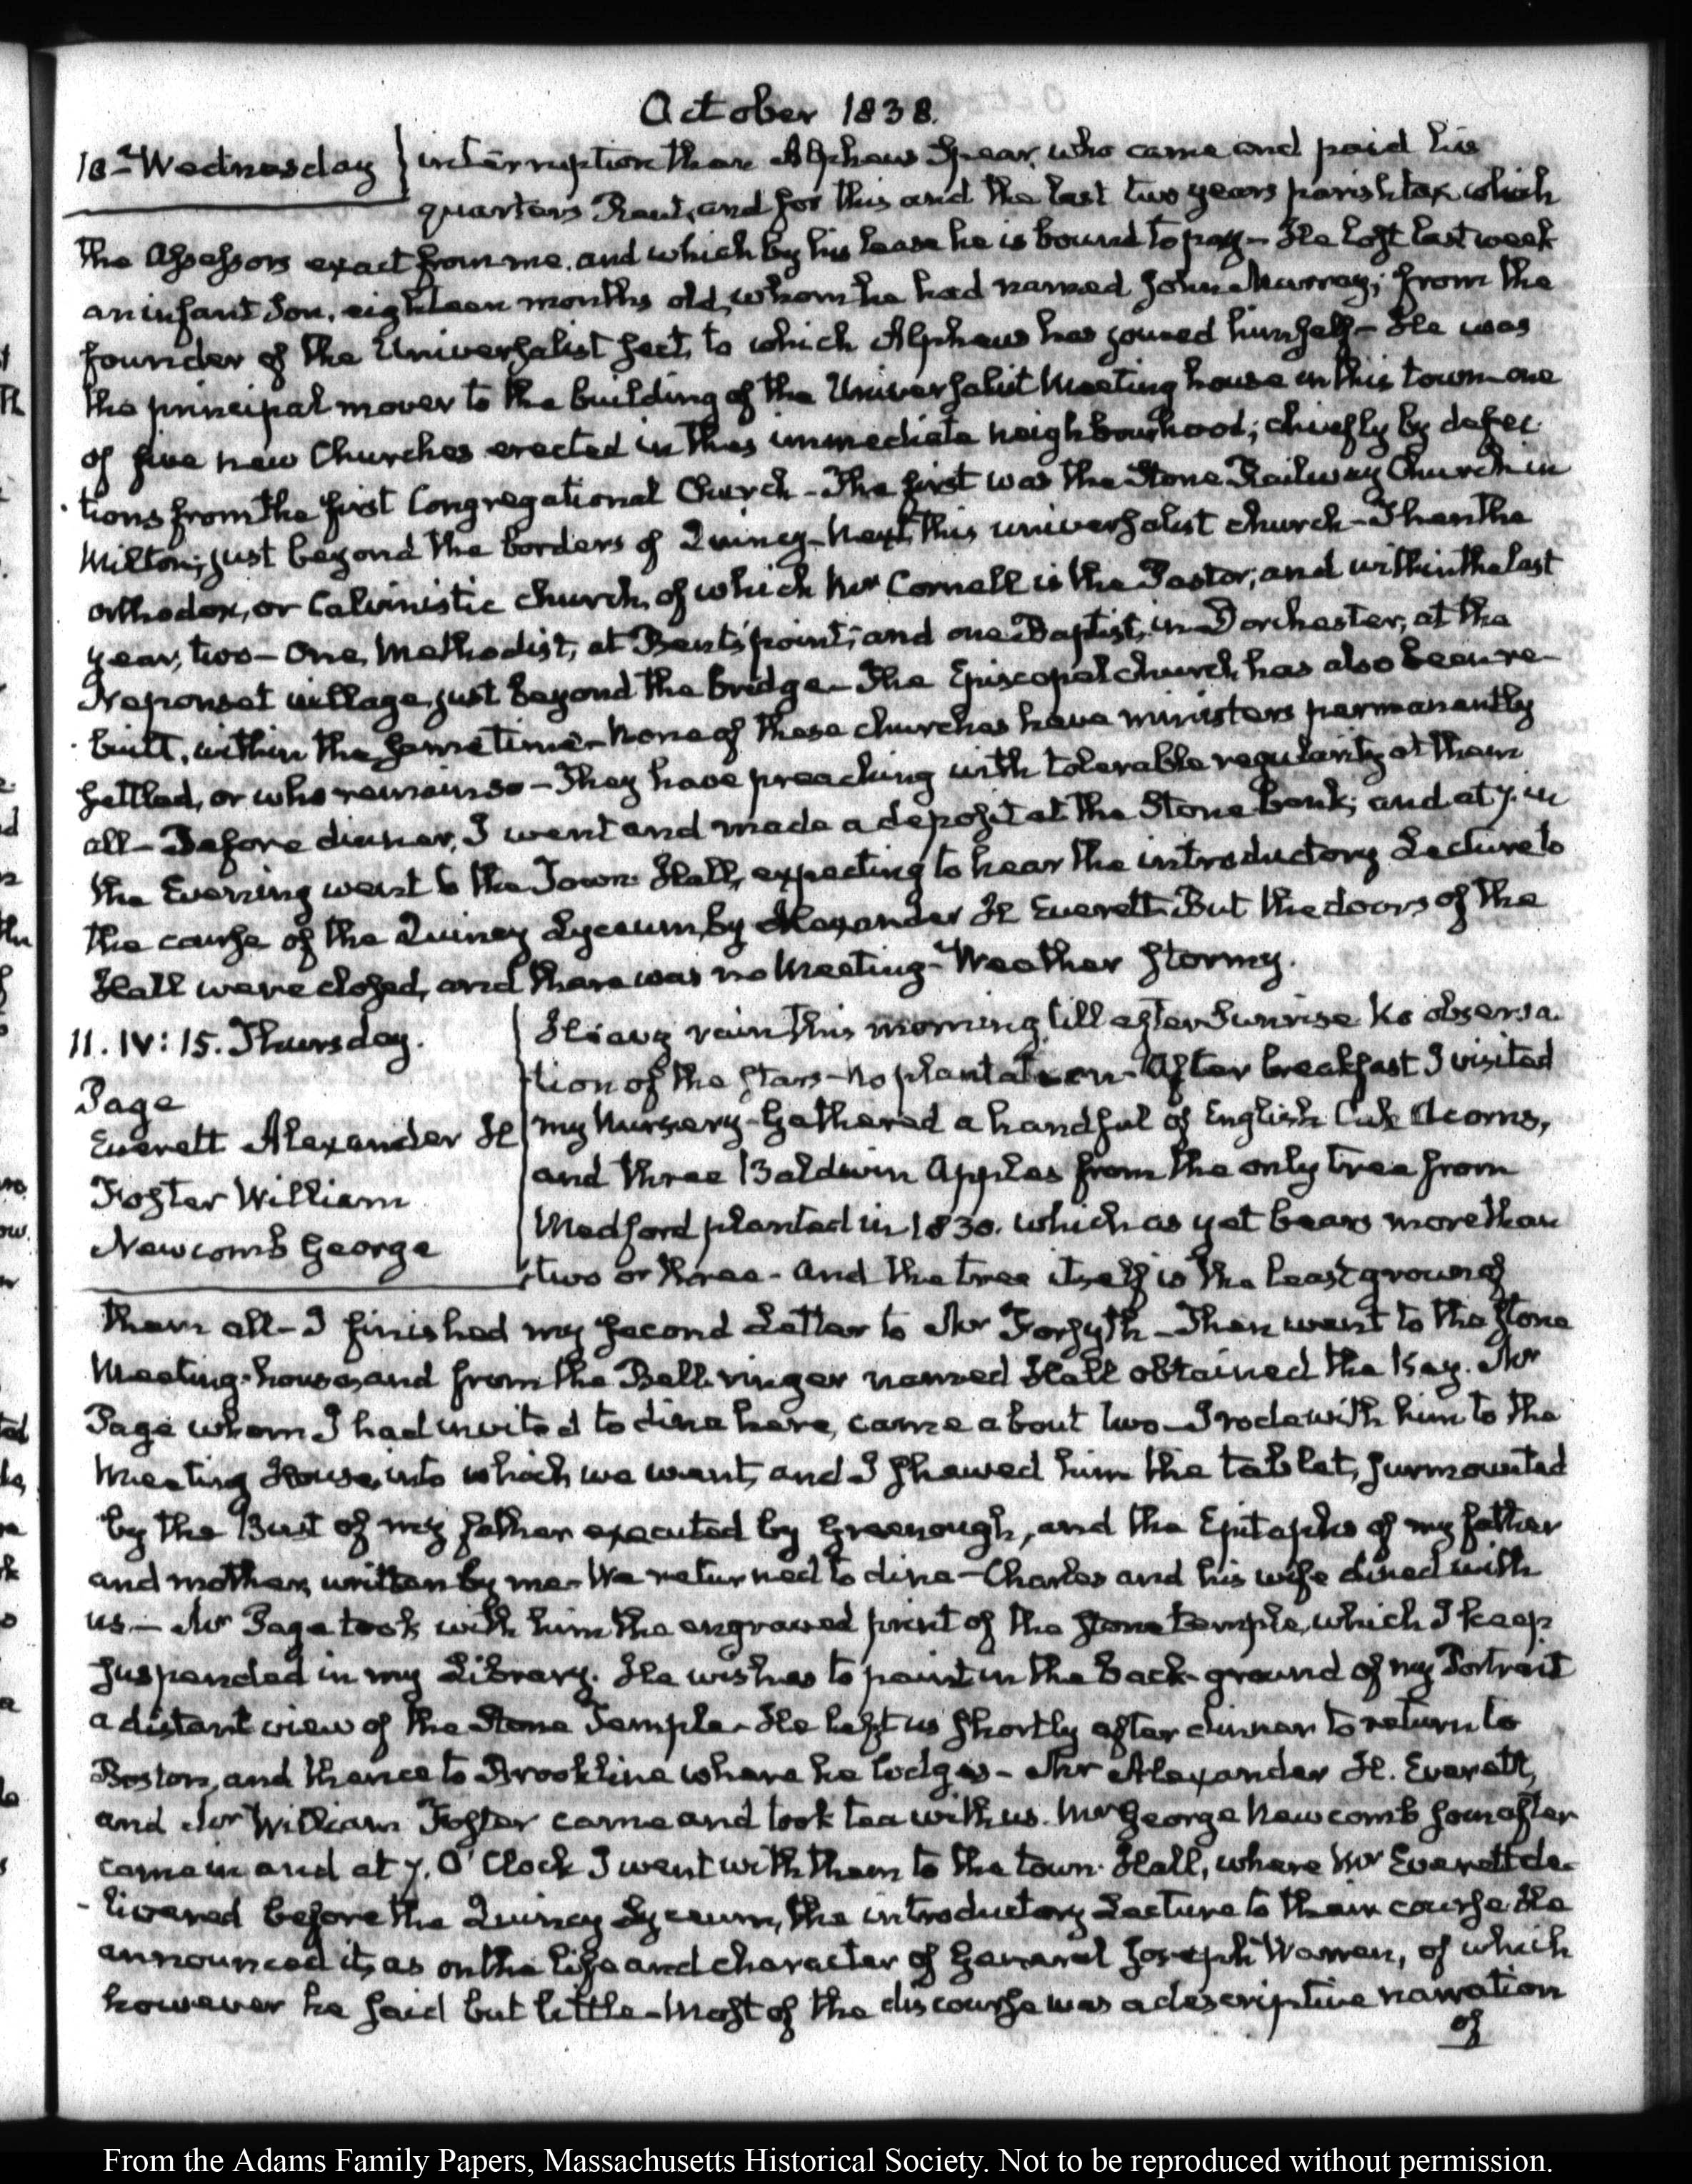 October 1838.
10. Wednesday
interruption than Alpheus Spear, who came and paid his
quarters Rent, and for this and the last two years parish tax which
the Assessors exact from me. and which by his lease he is bound to pay — He lost last week
an infant Son, eighteen months old, whom he had named John Murray; from the
founder of the Universalist sect, to which Alpheus has joined himself — He was
the principal mover to the building of the Universalist Meeting house in this town — one
of five new Churches erected in this immediate neighbourhood; chiefly by defec-
tions from the first Congregational Church — The first was the Stone Railway Church in
Milton; just beyond the borders of Quincy — Next, this universalist church — Then the
orthodox, or Calvinistic church, of which Mr Cornell is the Pastor; and within the last
year, two — One, Methodist, at Bent's point; and one Baptist, in Dorchester, at the
Neponset village, just beyond the bridge — The Episcopal church has also been re-
built, within the same time — None of these churches have ministers permanently
settled, or who remain so — They have preaching with tolerable regularity at them
all — Before dinner, I went and made a deposit at the Stone bank; and at 7. in
the Evening went to the Town-Hall, expecting to hear the introductory Lecture to
the course of the Quincy Lyceum, by Alexander H Everett. But the doors of the
Hall were closed, and there was no Meeting — Weather stormy.
11. IV: 15. Thursday.
Page
Everett Alexander H
Foster William
Newcomb George
Heavy rain this morning till after Sunrise. No observa-
tion of the stars — no plantation — After breakfast I visited
my Nursery — Gathered a handful of English Oak Acorns,
and three Baldwin Apples from the only tree from
Medford planted in 1830. which as yet bears more than
two or three — and the tree itself is the least grown of
them all — I finished my second Letter to Mr Forsyth — Then went to the Stone
Meeting-house, and from the Bell-ringer named Hall obtained the Key. Mr
Page whom I had invited to dine here, came about two — I rode with him to the
Meeting House, into which we went, and I shewed him the tablet, surmounted
by the Bust of my father executed by Greenough, and the Epitaphs of my father
and mother, written by me — We returned to dine — Charles and his wife dined with
us — Mr Page took with him the engraved print of the Stone temple, which I keep
suspended in my Library. He wishes to paint in the back-ground of my Portrait
a distant view of the Stone Temple — He left us shortly after dinner to return to
Boston, and thence to Brookline where he lodges — Mr Alexander H. Everett,
and Mr William Foster came and took tea with us. Mr George Newcomb soon after
came in and at 7. O'Clock I went with them to the town-Hall, where Mr Everett de-
livered before the Quincy Lyceum, the introductory Lecture to their course. He
announced it, as on the life and character of General Joseph Warren, of which
however he said but little — Most of the discourse was a descriptive narration
of
From the Adams Family Papers, Massachusetts Historical Society. Not to be reproduced without permission.